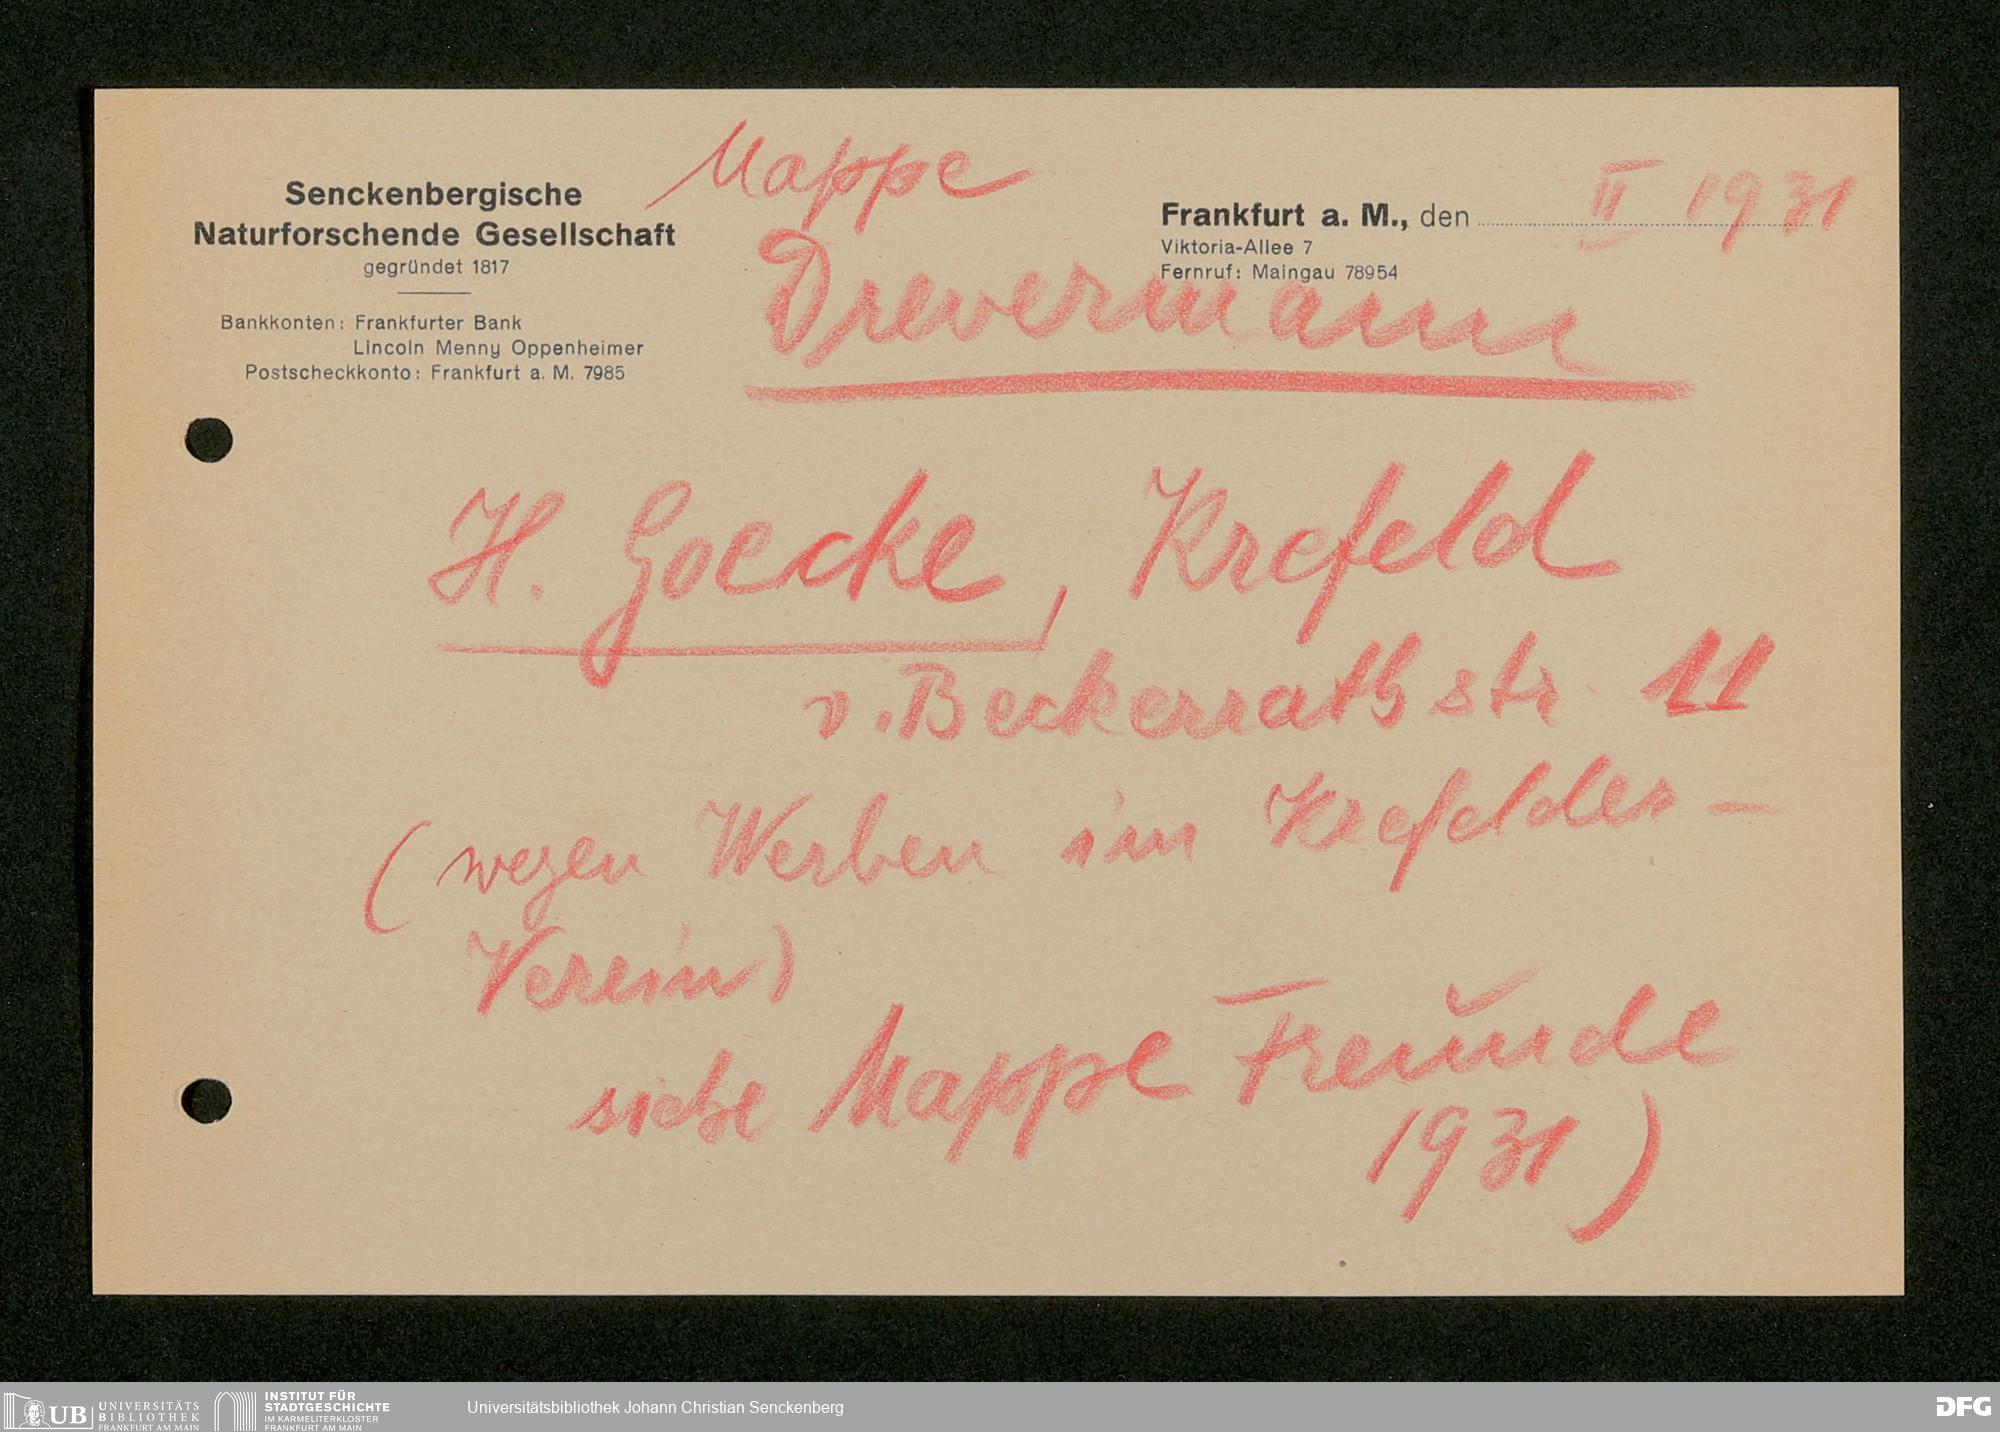 Mappe
Senckenbergische
Naturforschende Gesellschaft
gegründet 1817
Bankkonten: Frankfurter Bank
Lincoln Menny Oppenheimer
Postscheckkonto: Frankfurt a. M. 7985
Frankfurt a. M., den II 1931
Viktoria-Allee 7
Fernruf: Maingau 78954
Drevermann
H. Goecke, Krefeld
v. Beckerathstr. 11
(wegen Werben im Krefelder-
Verein)
siehe Mappe Freunde
1931)
UB UNIVERSITÄTS
BIBLIOTHEK
FRANKFURT AM MAIN
INSTITUT FÜR
STADTGESCHICHTE
IM KARMELITERKLOSTER
FRANKFURT AM MAIN
Universitätsbibliothek Johann Christian Senckenberg
DFG